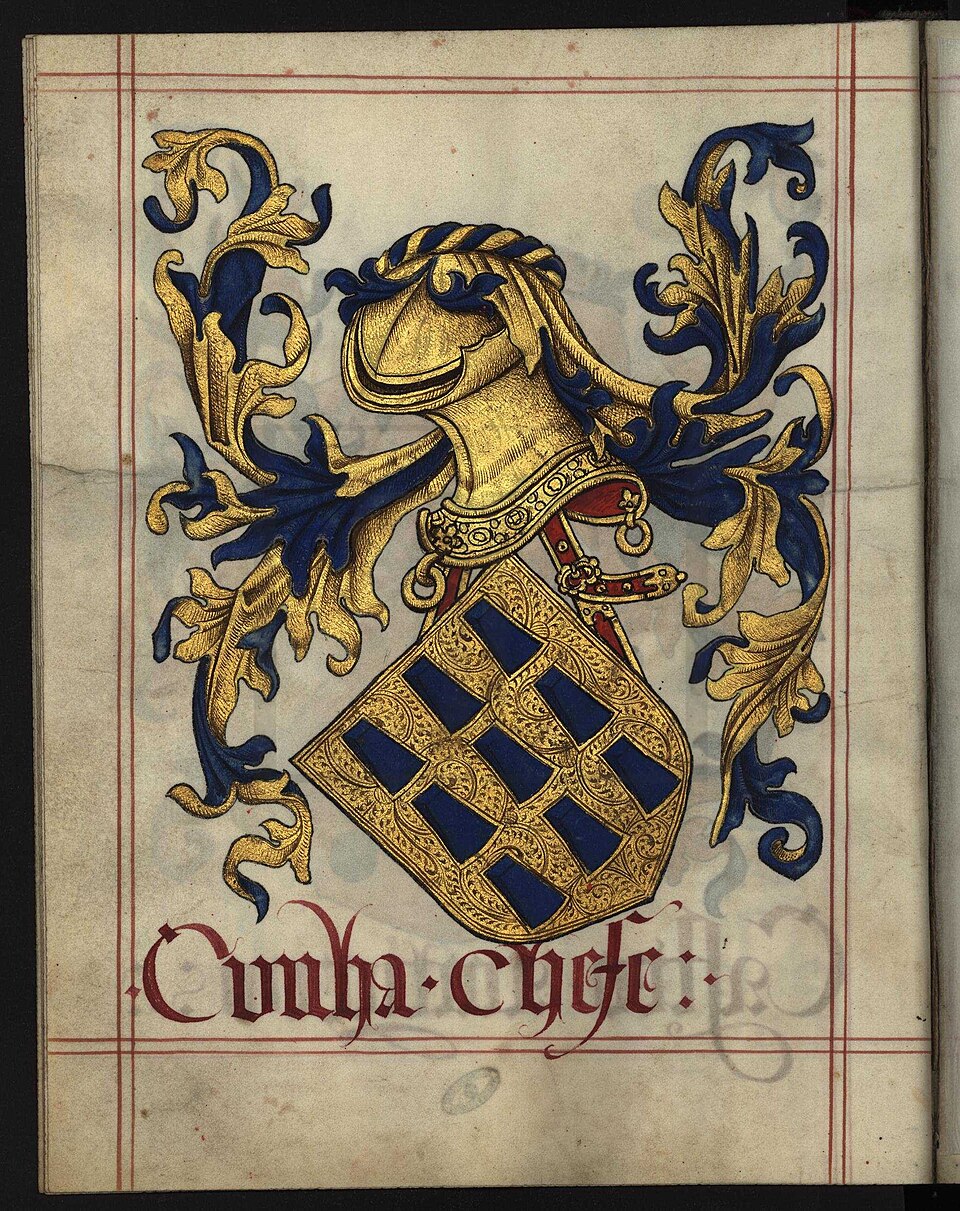 Cunha · chefe :